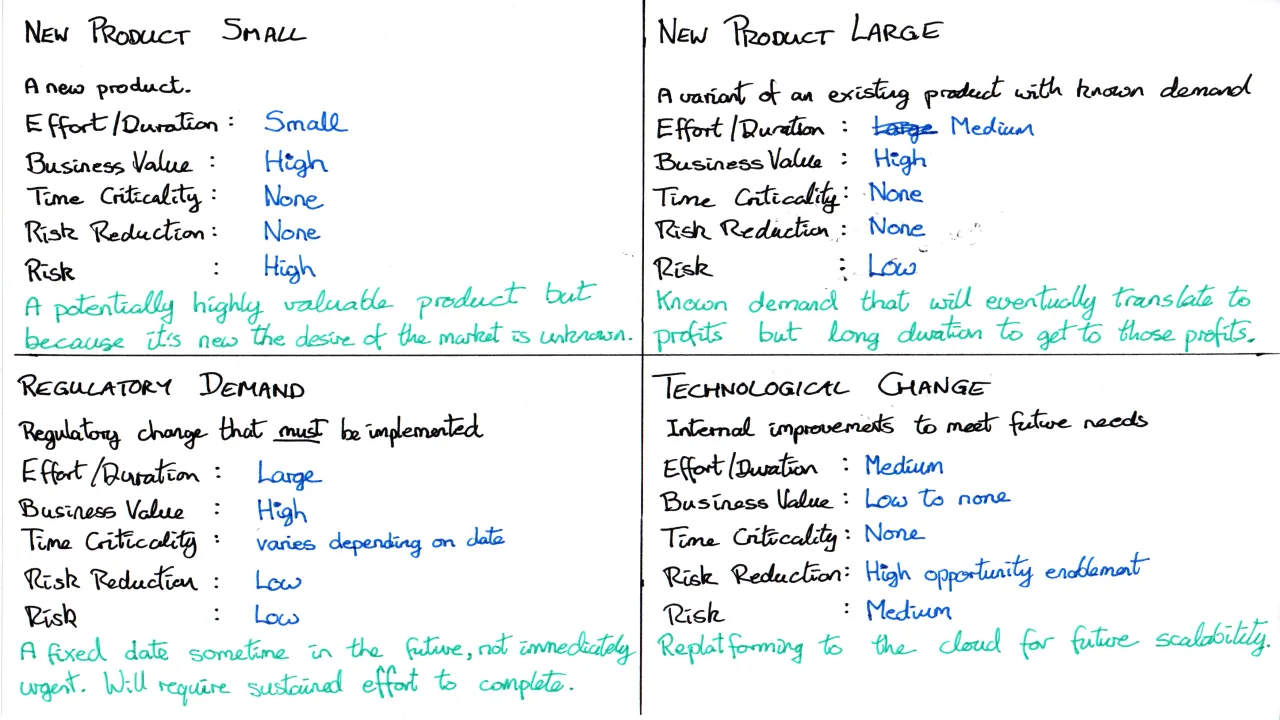 NEW PRODUCT SMALL
A new product.
Effort/Duration: Small
Business Value: High
Time Criticality: None
Risk Reduction: None
Risk : High
A potentially highly valuable product but
because it's new the desire of the market is unknown.
NEW PRODUCT LARGE
A variant of an existing product with known demand
Effort/Duration : Large Medium
Business Value : High
Time Criticality: None
Risk Reduction : None
Risk : Low
Known demand that will eventually translate to
profits but long duration to get to those profits.
REGULATORY DEMAND
Regulatory change that must be implemented
Effort/Duration : Large
Business Value : High
Time Criticality : varies depending on date
Risk Reduction : Low
Risk : Low
A fixed date sometime in the future, not immediately
urgent. Will require sustained effort to complete.
TECHNOLOGICAL CHANGE
Internal improvements to meet future needs
Effort/Duration : Medium
Business Value : Low to none
Time Criticality: None
Risk Reduction: High opportunity enablement
Risk : Medium
Replatforming to the cloud for future scalability.